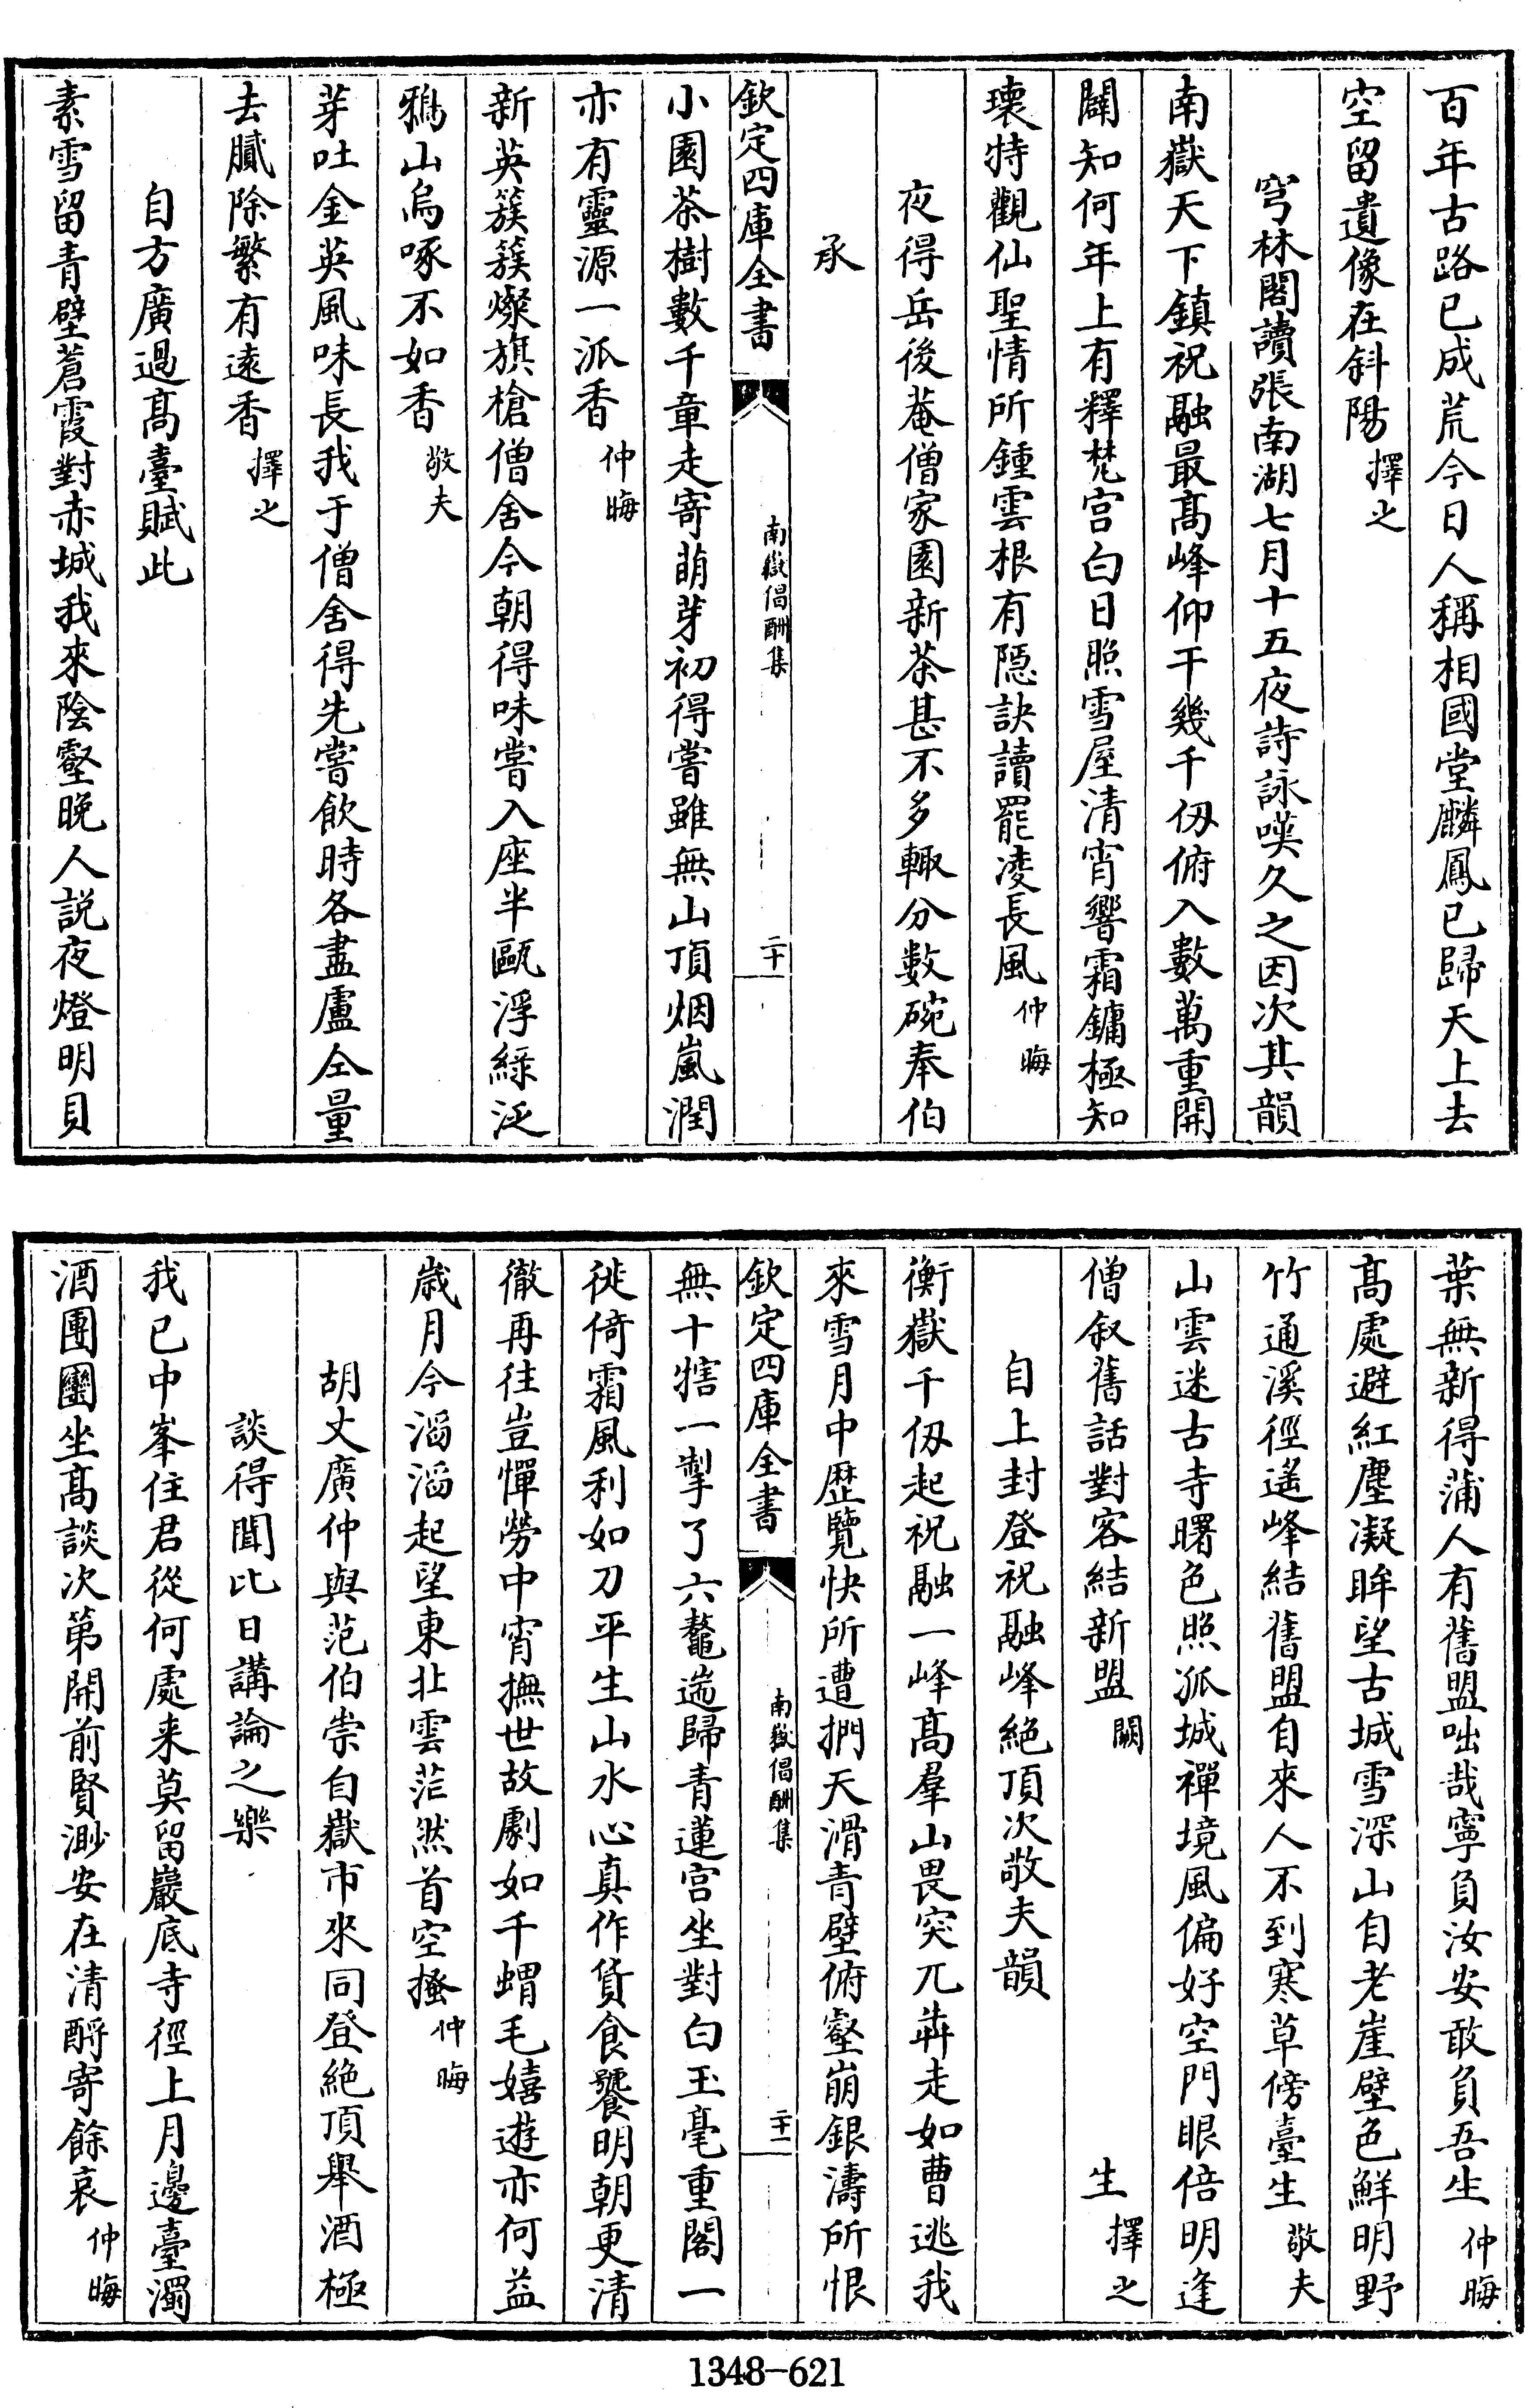 百年古路已成荒今日人稱相國堂麟鳳已歸天上去
空留遺像在斜陽擇之
穹林閣讀張南湖七月十五夜詩詠嘆久之因次其韻
南嶽天下鎮祝融最髙峰仰干幾千仭俯入數萬重開
闢知何年上有釋梵宫白日照雪屋清宵響霜鏞極知
瓌特觀仙聖情所鍾雲根有隠訣讀罷凌長風仲晦
夜得岳後菴僧家園新茶甚不多輙分數碗奉伯
承
欽定四庫全書
南嶽倡酬集
二十
小園茶樹數千章走寄萌芽初得嘗雖無山頂烟嵐潤
亦有靈源一派香仲晦
新英簇簇燦旗槍僧舍今朝得味嘗入座半甌浮綠泛
鴉山烏啄不如香敬夫
芽吐金英風味長我于僧舍得先嘗飲時各盡盧仝量
去膩除繁有遠香擇之
自方廣過髙臺賦此
素雪留青壁蒼霞對赤城我來陰壑晚人説夜燈明貝
葉無新得蒲人有舊盟咄哉寧負汝安敢負吾生仲晦
髙處避紅塵凝眸望古城雪深山自老崖壁色鮮明野
竹通溪徑遙峰結舊盟自來人不到寒草傍臺生敬夫
山雲迷古寺曙色照孤城禪境風偏好空門眼倍明逢
僧叙舊話對客結新盟闕生擇之
自上封登祝融峰絶頂次敬夫韻
衡嶽千仭起祝融一峰髙羣山畏突兀犇走如曹逃我
來雪月中歴覽快所遭捫天滑青壁俯壑崩銀濤所恨
欽定四庫全書
南嶽倡酬集
二十一
無十犗一掣了六鼇遄歸青蓮宫坐對白玉毫重閣一
徙倚霜風利如刀平生山水心真作貨食饕明朝更清
徹再往豈憚勞中宵撫世故劇如千蝟毛嬉遊亦何益
歳月今滔滔起望東北雲茫然首空搔仲晦
胡丈廣仲與范伯崇自嶽市來同登絶頂舉酒極
談得聞比日講論之樂
我已中峯住君從何處来莫留巖底寺徑上月邊臺濁
酒團圞坐髙談次第開前賢渺安在清酹寄餘哀仲晦
1348-621